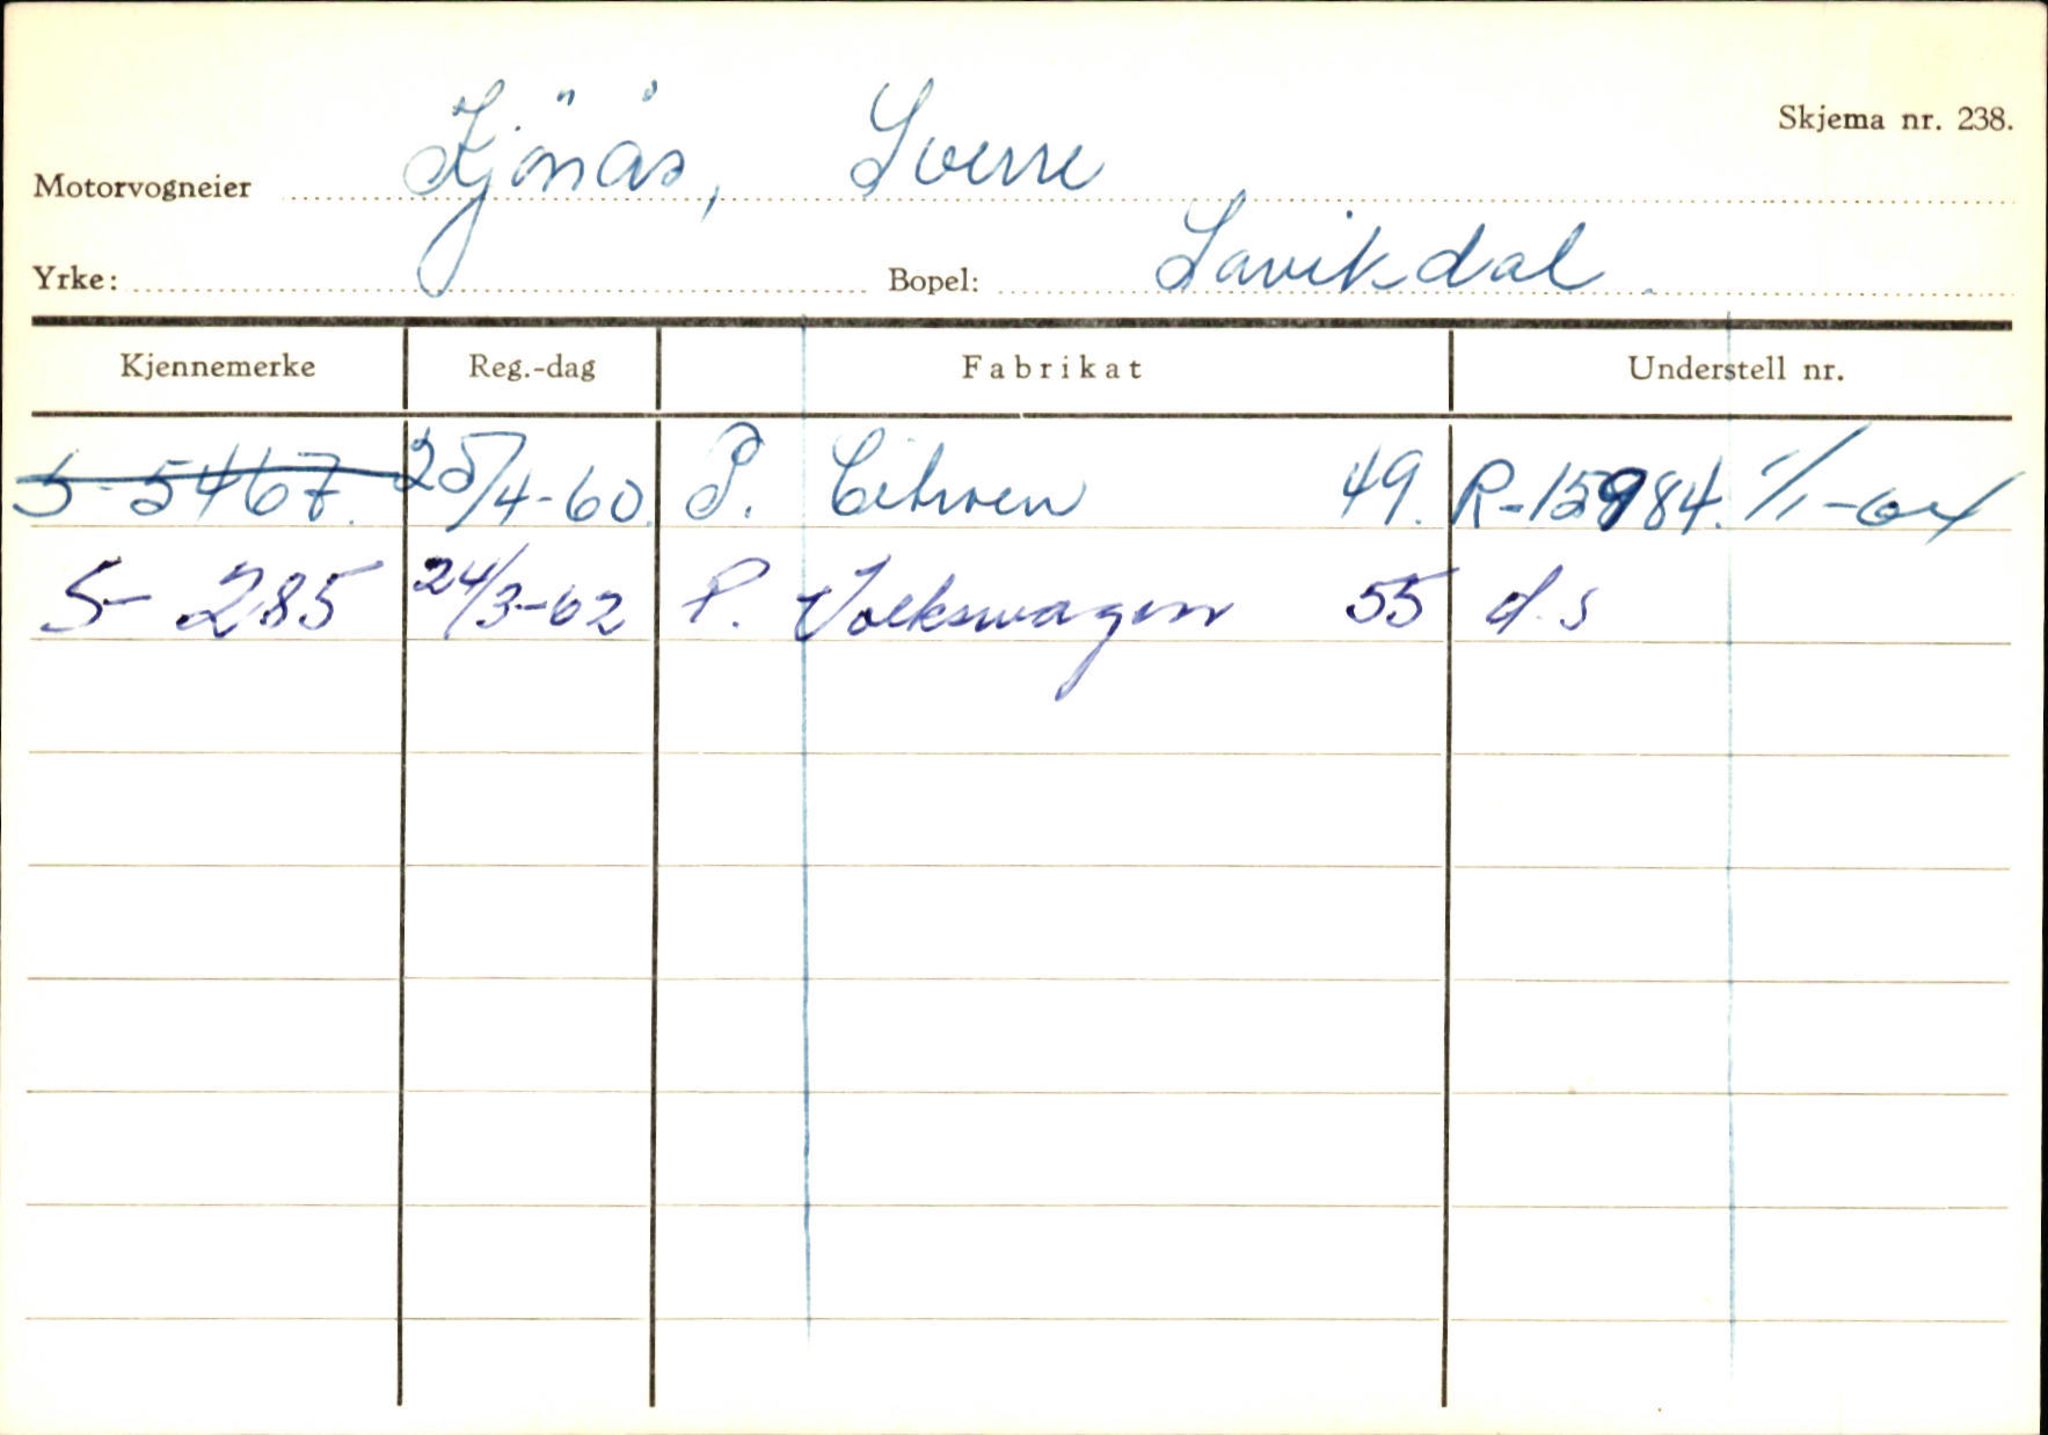 Skjema nr. 238.
Motorvogneier Kjönås, Sverre
Yrke: Bopel: Lavikdal.
Kjennemerke Reg.-dag Fabrikat Understell nr.
S-5467. 25/4-60. P. Citroen 49. R-15984. 1/1-64
S-285 24/3-62 P. Volkswagen 55 d.s